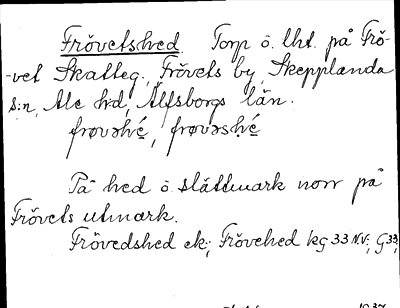 Frövetshed. Torp o. lht. på Frö-
-vet Skatteg., Frövets by, Skepplanda
s:n, Ale hd, Älfsborgs län.
frøvəhé, frøvəshé
På hed o. slåttmark norr på
Frövets utmark.
Frövedshed ek; Frövehed kg 33 N.V.; G 33,
1937